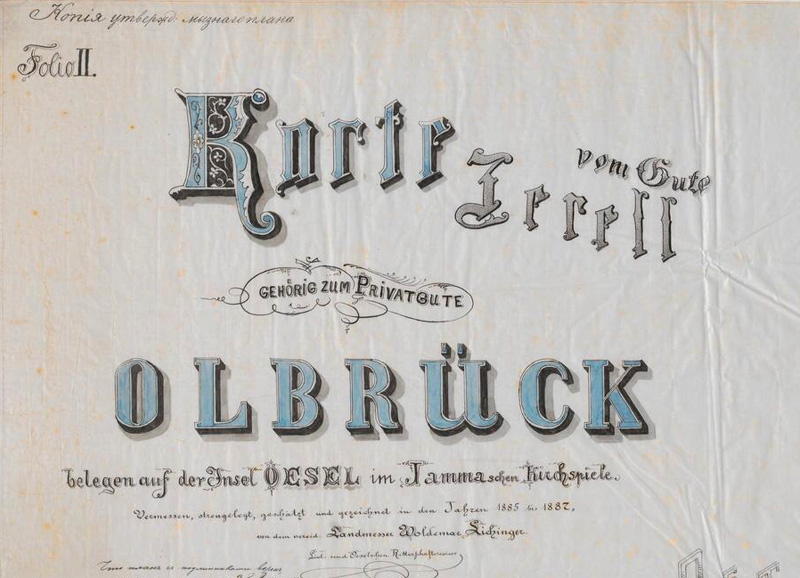 Копія утвержд. мызнаго плана
Folio II.
Karte
vom Gute
Jerell
GEHÖRIG ZUM PRIVATGUTE
OLBRÜCK
belegen auf der Insel OESEL im Jammaschen Kirchspiele.
Vermessen, streugelegt, geschätzt und gezeichnet in den Jahren 1885 bis 1887,
von dem vereid. Landmesser Woldemar Eichinger.